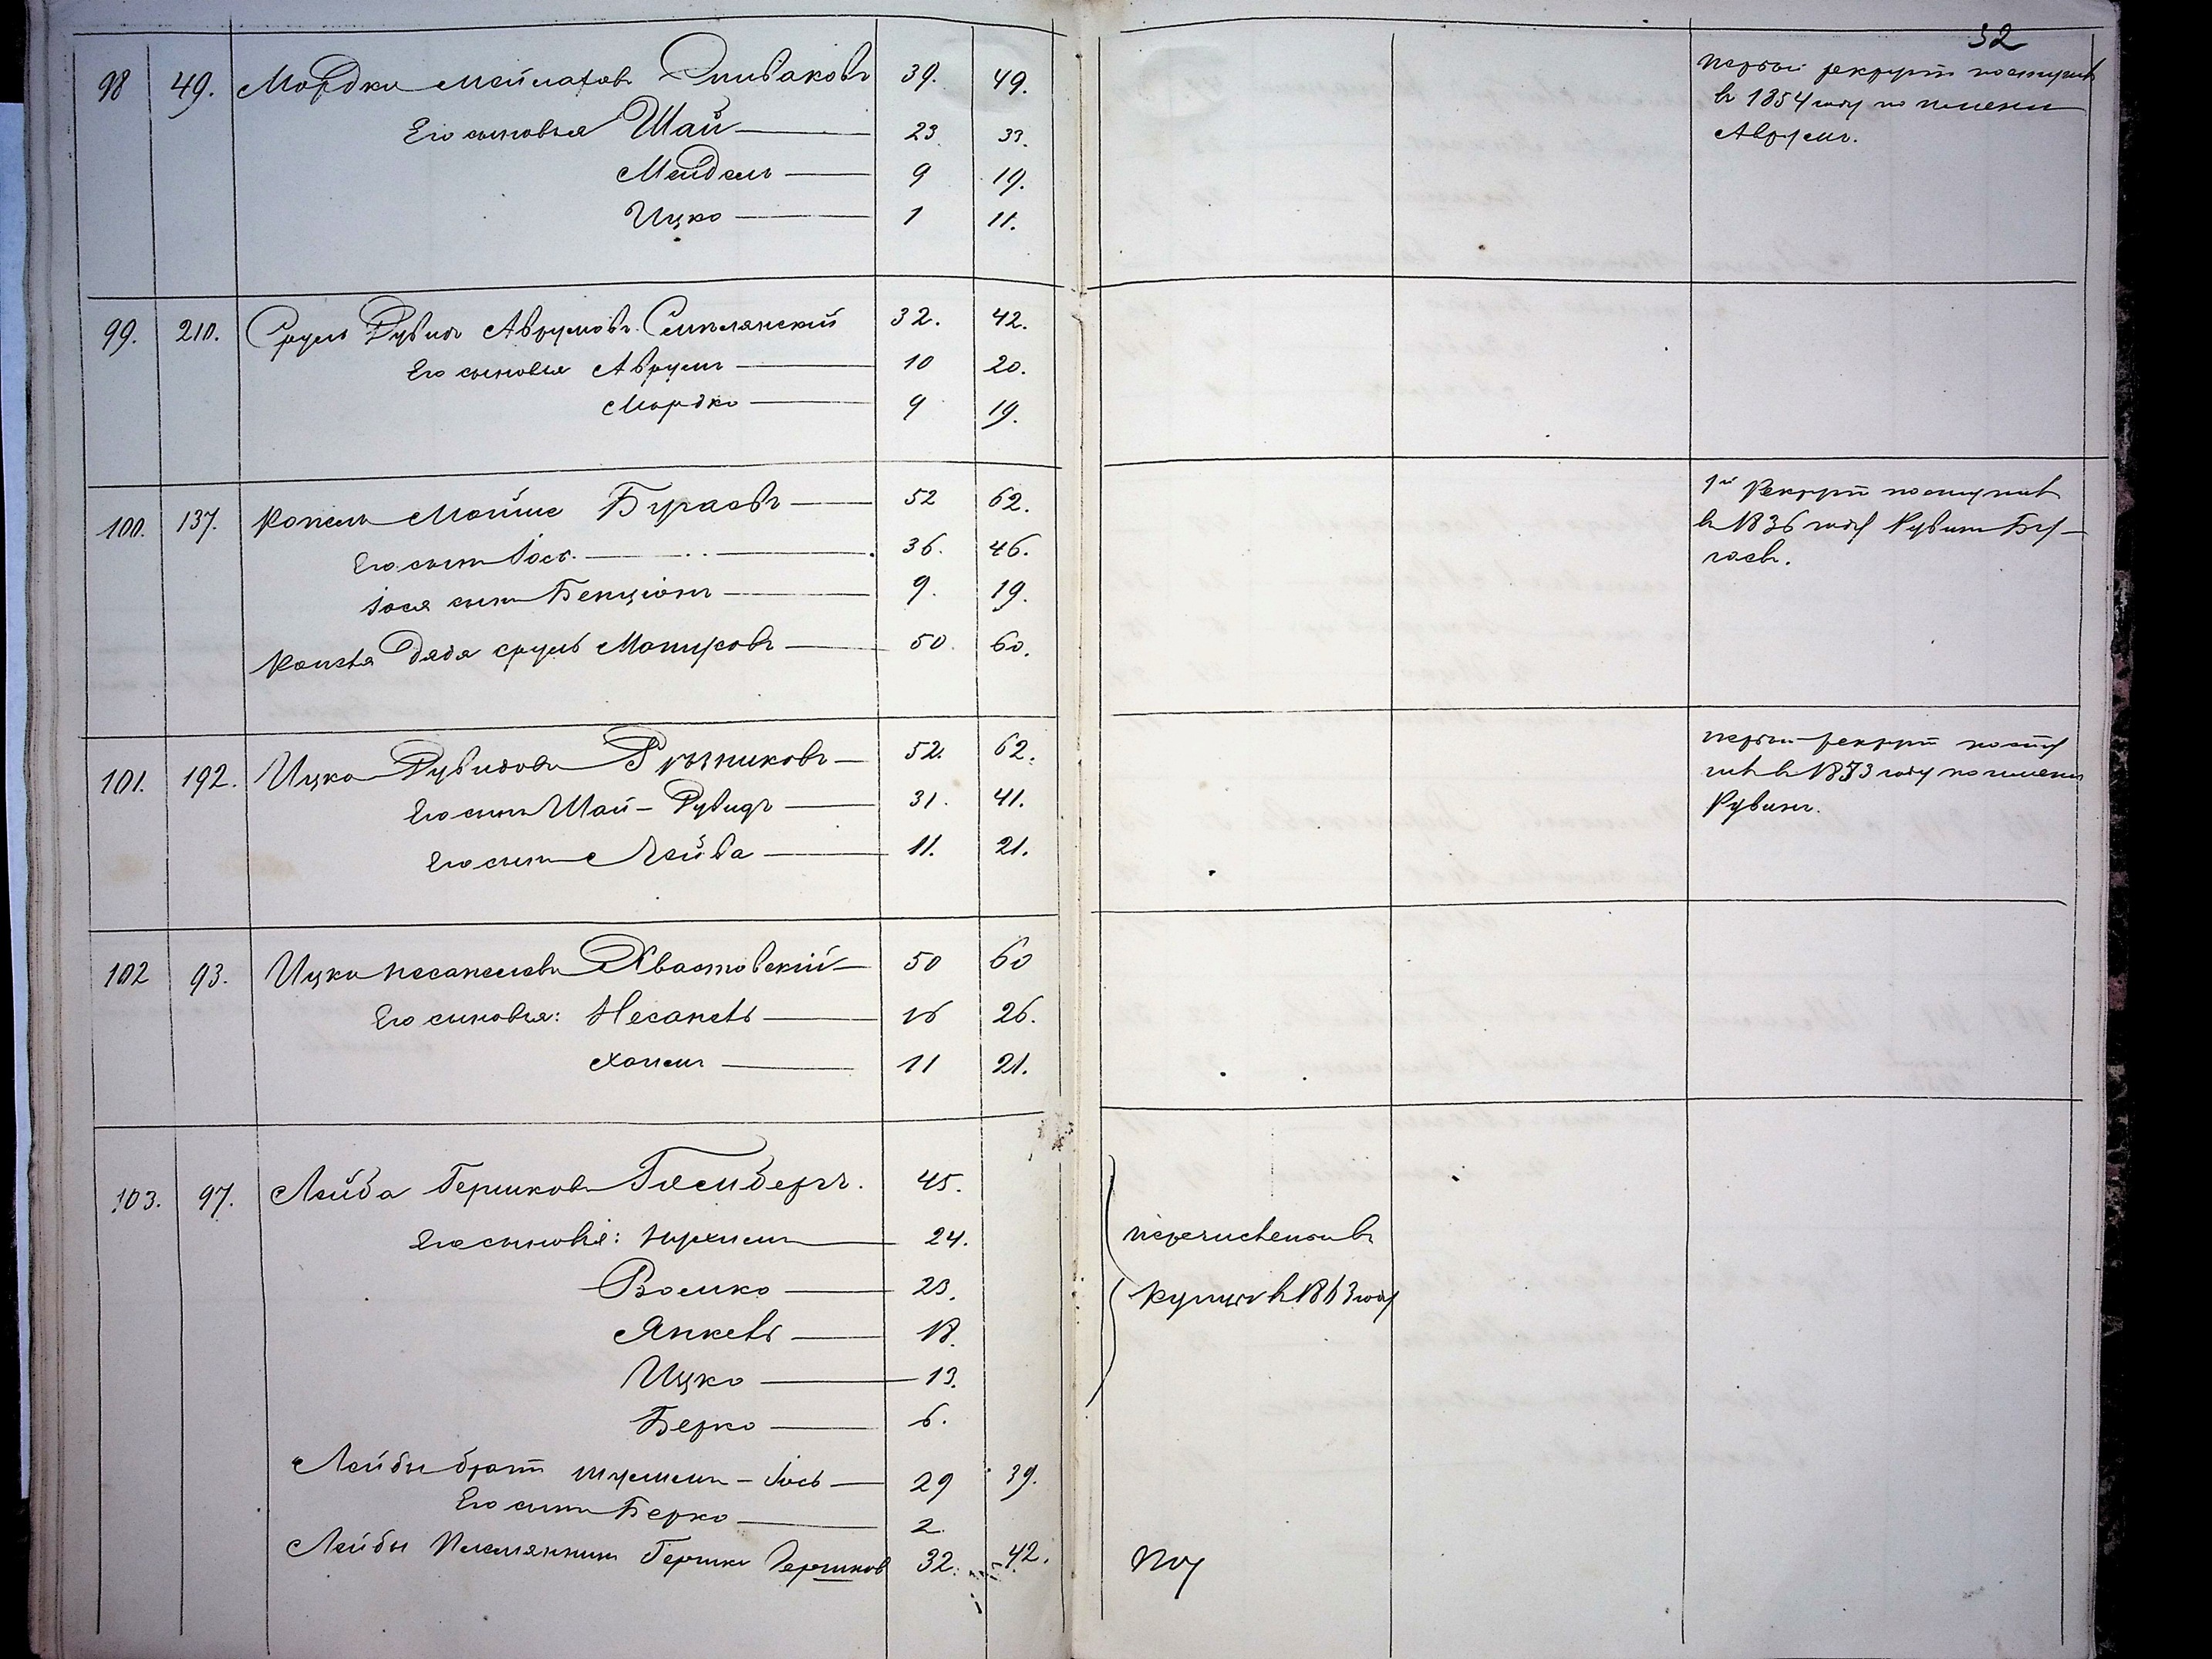 32
98 49. Мордко Спиваковъ 39. 49.
Его сыновья Шай 23. 33.
Мендель 9 19.
Ицко 1 11.
первый рекрутъ поступилъ
въ 1854 году по имени
Аврумъ.
99. 210. Сруль Рувинъ Аврумовъ Смилянский 32. 42.
Его сыновья Аврумъ 10 20.
Мордко 9 19.
100. 137. Копель Мойше Бугаевъ 52 62.
Его сынъ Іось 36. 46.
Іося сынъ Бенціонъ 9. 19.
Копеля дядя Сруль 50. 60.
1й Рекрутъ поступилъ
въ 1836 году Рувинъ Бу-
гаевъ.
101. 192. Ицко Рувиновъ Рѣзниковъ 52. 62.
Его сынъ Шай-Рувинъ 31. 41.
Его сынъ Лейба 11. 21.
первый рекрутъ посту
пилъ въ году по имени
Рувинъ.
102 93. Ицко Хвастовскій 50 60
Его сыновья: 16 26.
Хаимъ 11 21.
103. 97. Лейба Гершковъ 45.
Его сыновья: 24.
Волько 23.
Янкель 18.
Ицко 13.
Берко 6.
Лейбы братъ Шулимъ-Іось 29 39.
Его сынъ Берко 2.
Лейбы Племянникъ Гершко Гершков 32. 42.
перечисленъ въ
купцы въ 1863 году